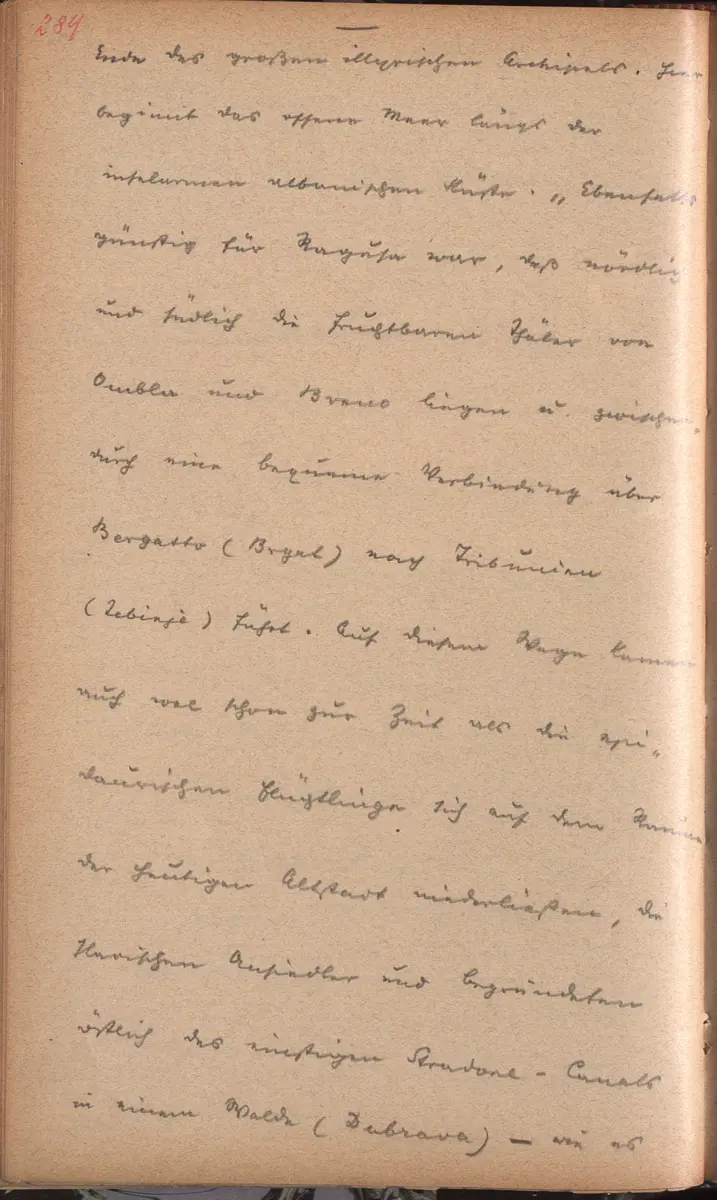 284
Ende des großen illyrischen Archipels. Hier
beginnt das offene Meer längs der
inselarmen albanischen Küste. „Ebenfalls
günstig für Ragusa war, daß nördlich
und südlich die fruchtbaren Thäler von
Ombla und Breno liegen u. zwischen„
durch eine bequeme Verbindung über
Bergatto (Brgat) nach Tribunien
(Trebinje) führt. Auf diesem Wege kamen
auch wol schon zur Zeit als die epi„
daurischen Flüchtlinge sich auf dem Raume
der heutigen Altstadt niederließen, die
slavischen Ansiedler und begründeten
östlich des einstigen Stradone - Canals
in einem Walde (Dubrava) — wie es